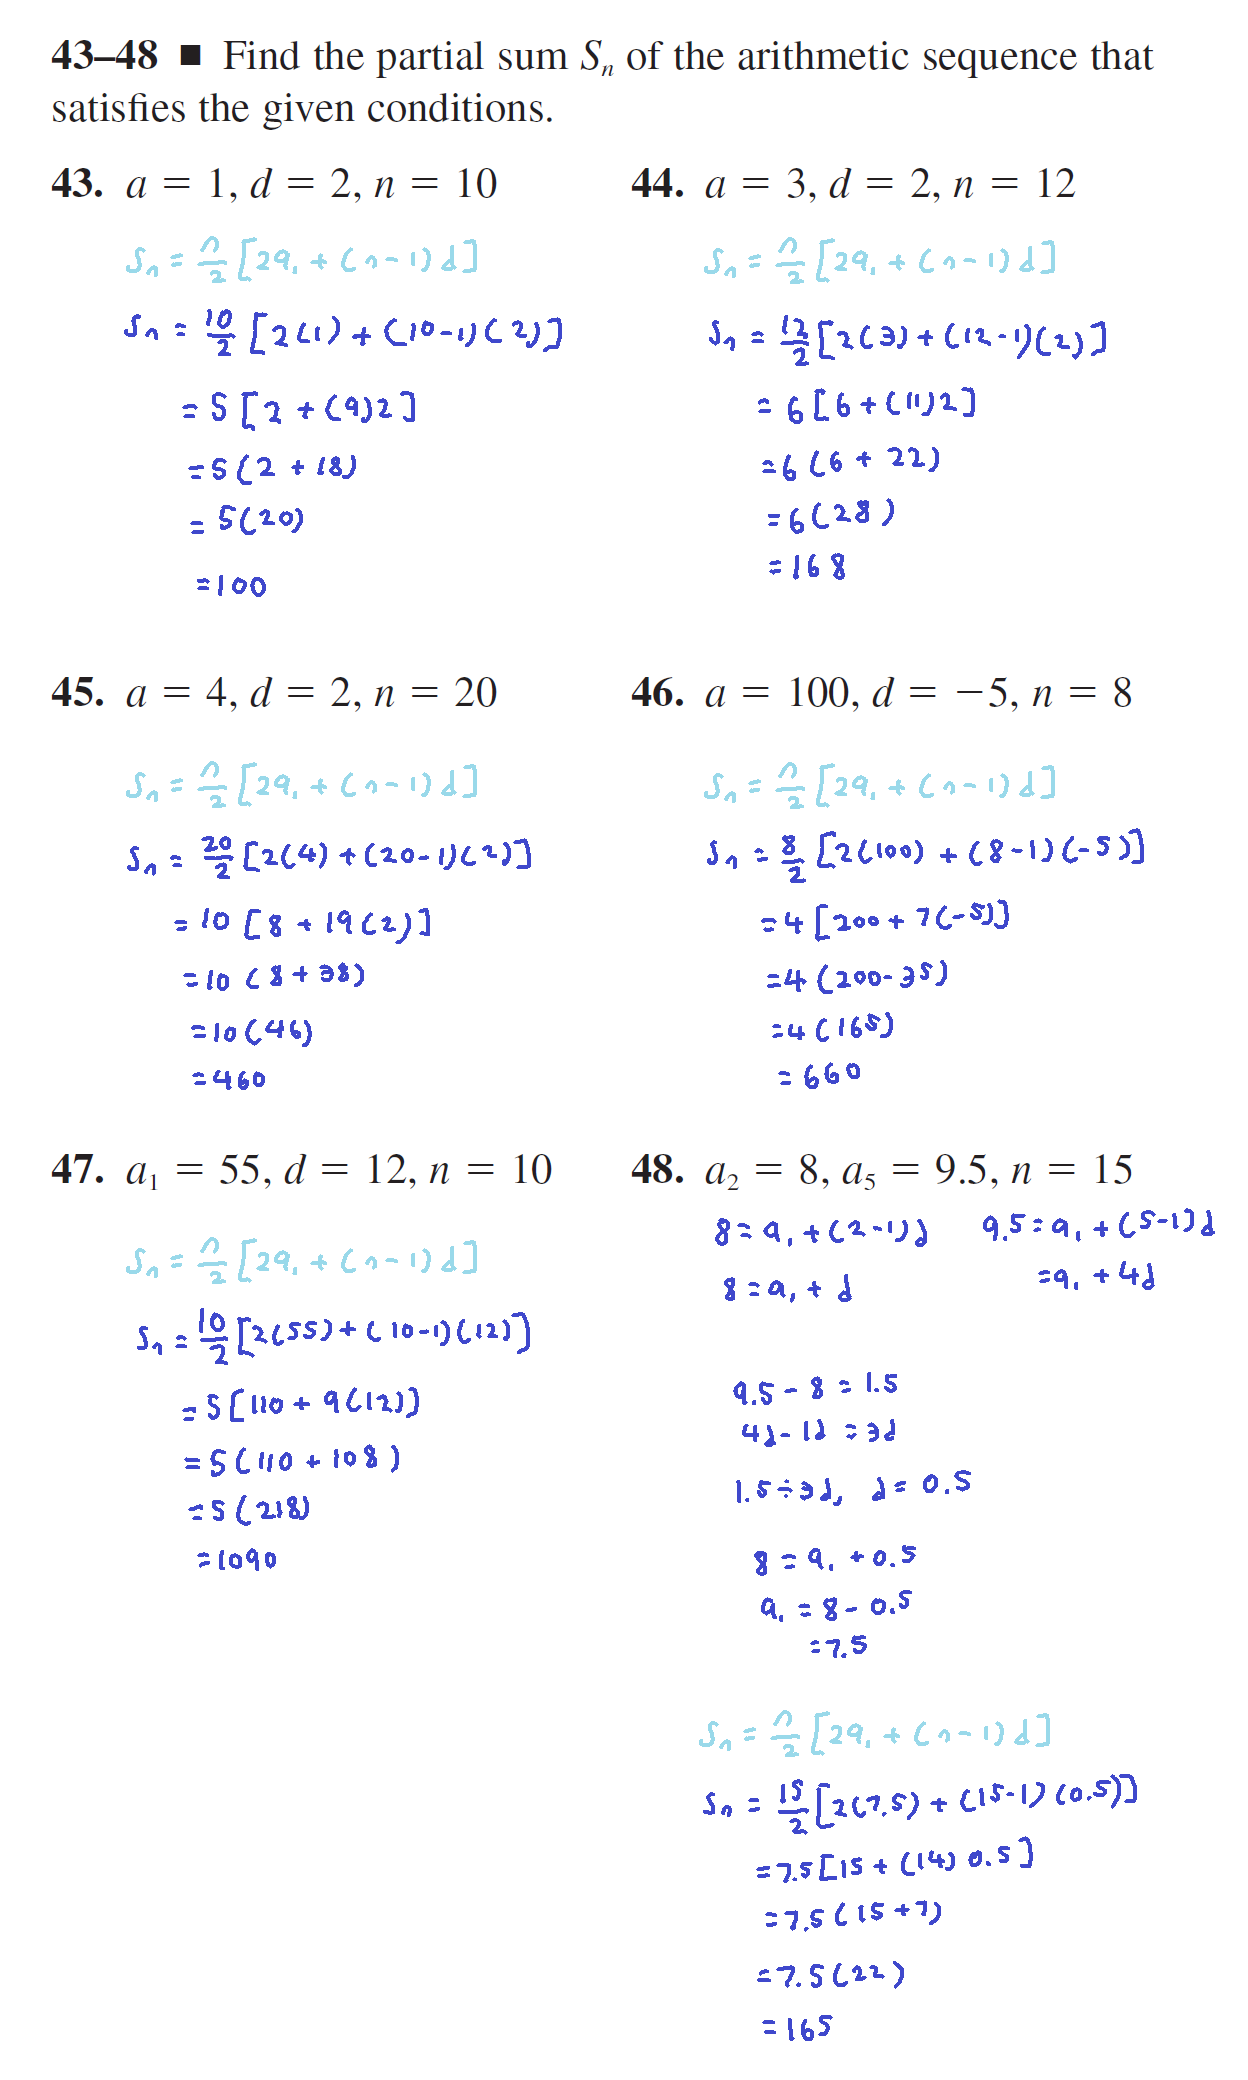 43–48 ■ Find the partial sum Sₙ of the arithmetic sequence that
satisfies the given conditions.
43. a = 1, d = 2, n = 10
Sₙ = n/2 [2a₁ + (n-1)d]
Sₙ = 10/2 [2(1) + (10-1)(2)]
= 5 [2 + (9)2]
= 5 (2 + 18)
= 5(20)
= 100
44. a = 3, d = 2, n = 12
Sₙ = n/2 [2a₁ + (n-1)d]
Sₙ = 12/2 [2(3) + (12-1)(2)]
= 6 [6 + (11)2]
= 6 (6 + 22)
= 6 (28)
= 168
45. a = 4, d = 2, n = 20
Sₙ = n/2 [2a₁ + (n-1)d]
Sₙ = 20/2 [2(4) + (20-1)(2)]
= 10 [8 + 19(2)]
= 10 (8 + 38)
= 10 (46)
= 460
46. a = 100, d = −5, n = 8
Sₙ = n/2 [2a₁ + (n-1)d]
Sₙ = 8/2 [2(100) + (8-1)(-5)]
= 4 [200 + 7(-5)]
= 4 (200-35)
= 4 (165)
= 660
47. a₁ = 55, d = 12, n = 10
Sₙ = n/2 [2a₁ + (n-1)d]
Sₙ = 10/2 [2(55) + (10-1)(12)]
= 5 [110 + 9(12)]
= 5 (110 + 108)
= 5 (218)
= 1090
48. a₂ = 8, a₅ = 9.5, n = 15
8 = a₁ + (2-1)d 9.5 = a₁ + (5-1)d
8 = a₁ + d = a₁ + 4d
9.5 - 8 = 1.5
4d - 1d = 3d
1.5 ÷ 3d, d = 0.5
8 = a₁ + 0.5
a₁ = 8 - 0.5
= 7.5
Sₙ = n/2 [2a₁ + (n-1)d]
Sₙ = 15/2 [2(7.5) + (15-1)(0.5)]
= 7.5 [15 + (14) 0.5]
= 7.5 (15 + 7)
= 7.5 (22)
= 165